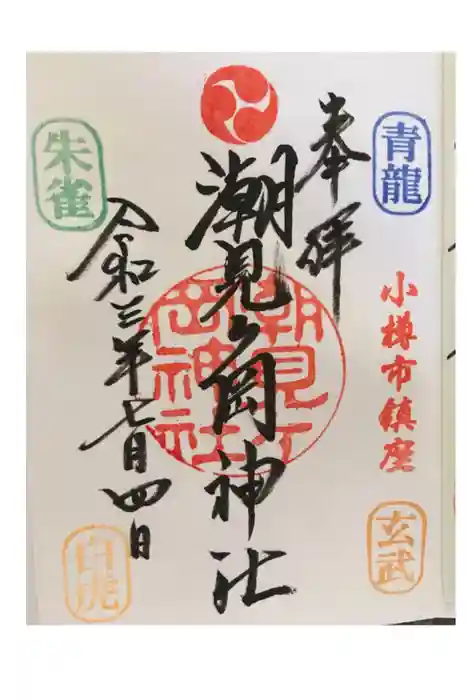 青龍
小樽市鎮座
玄武
奉拝
潮見ケ岡神社
潮見ケ岡神社
令和三年七月四日
朱雀
白虎